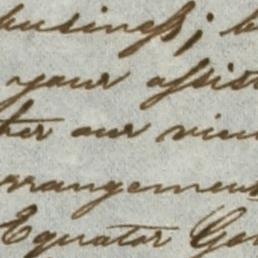 business; b
your assis
her our view
rrangemen
Equator Ge